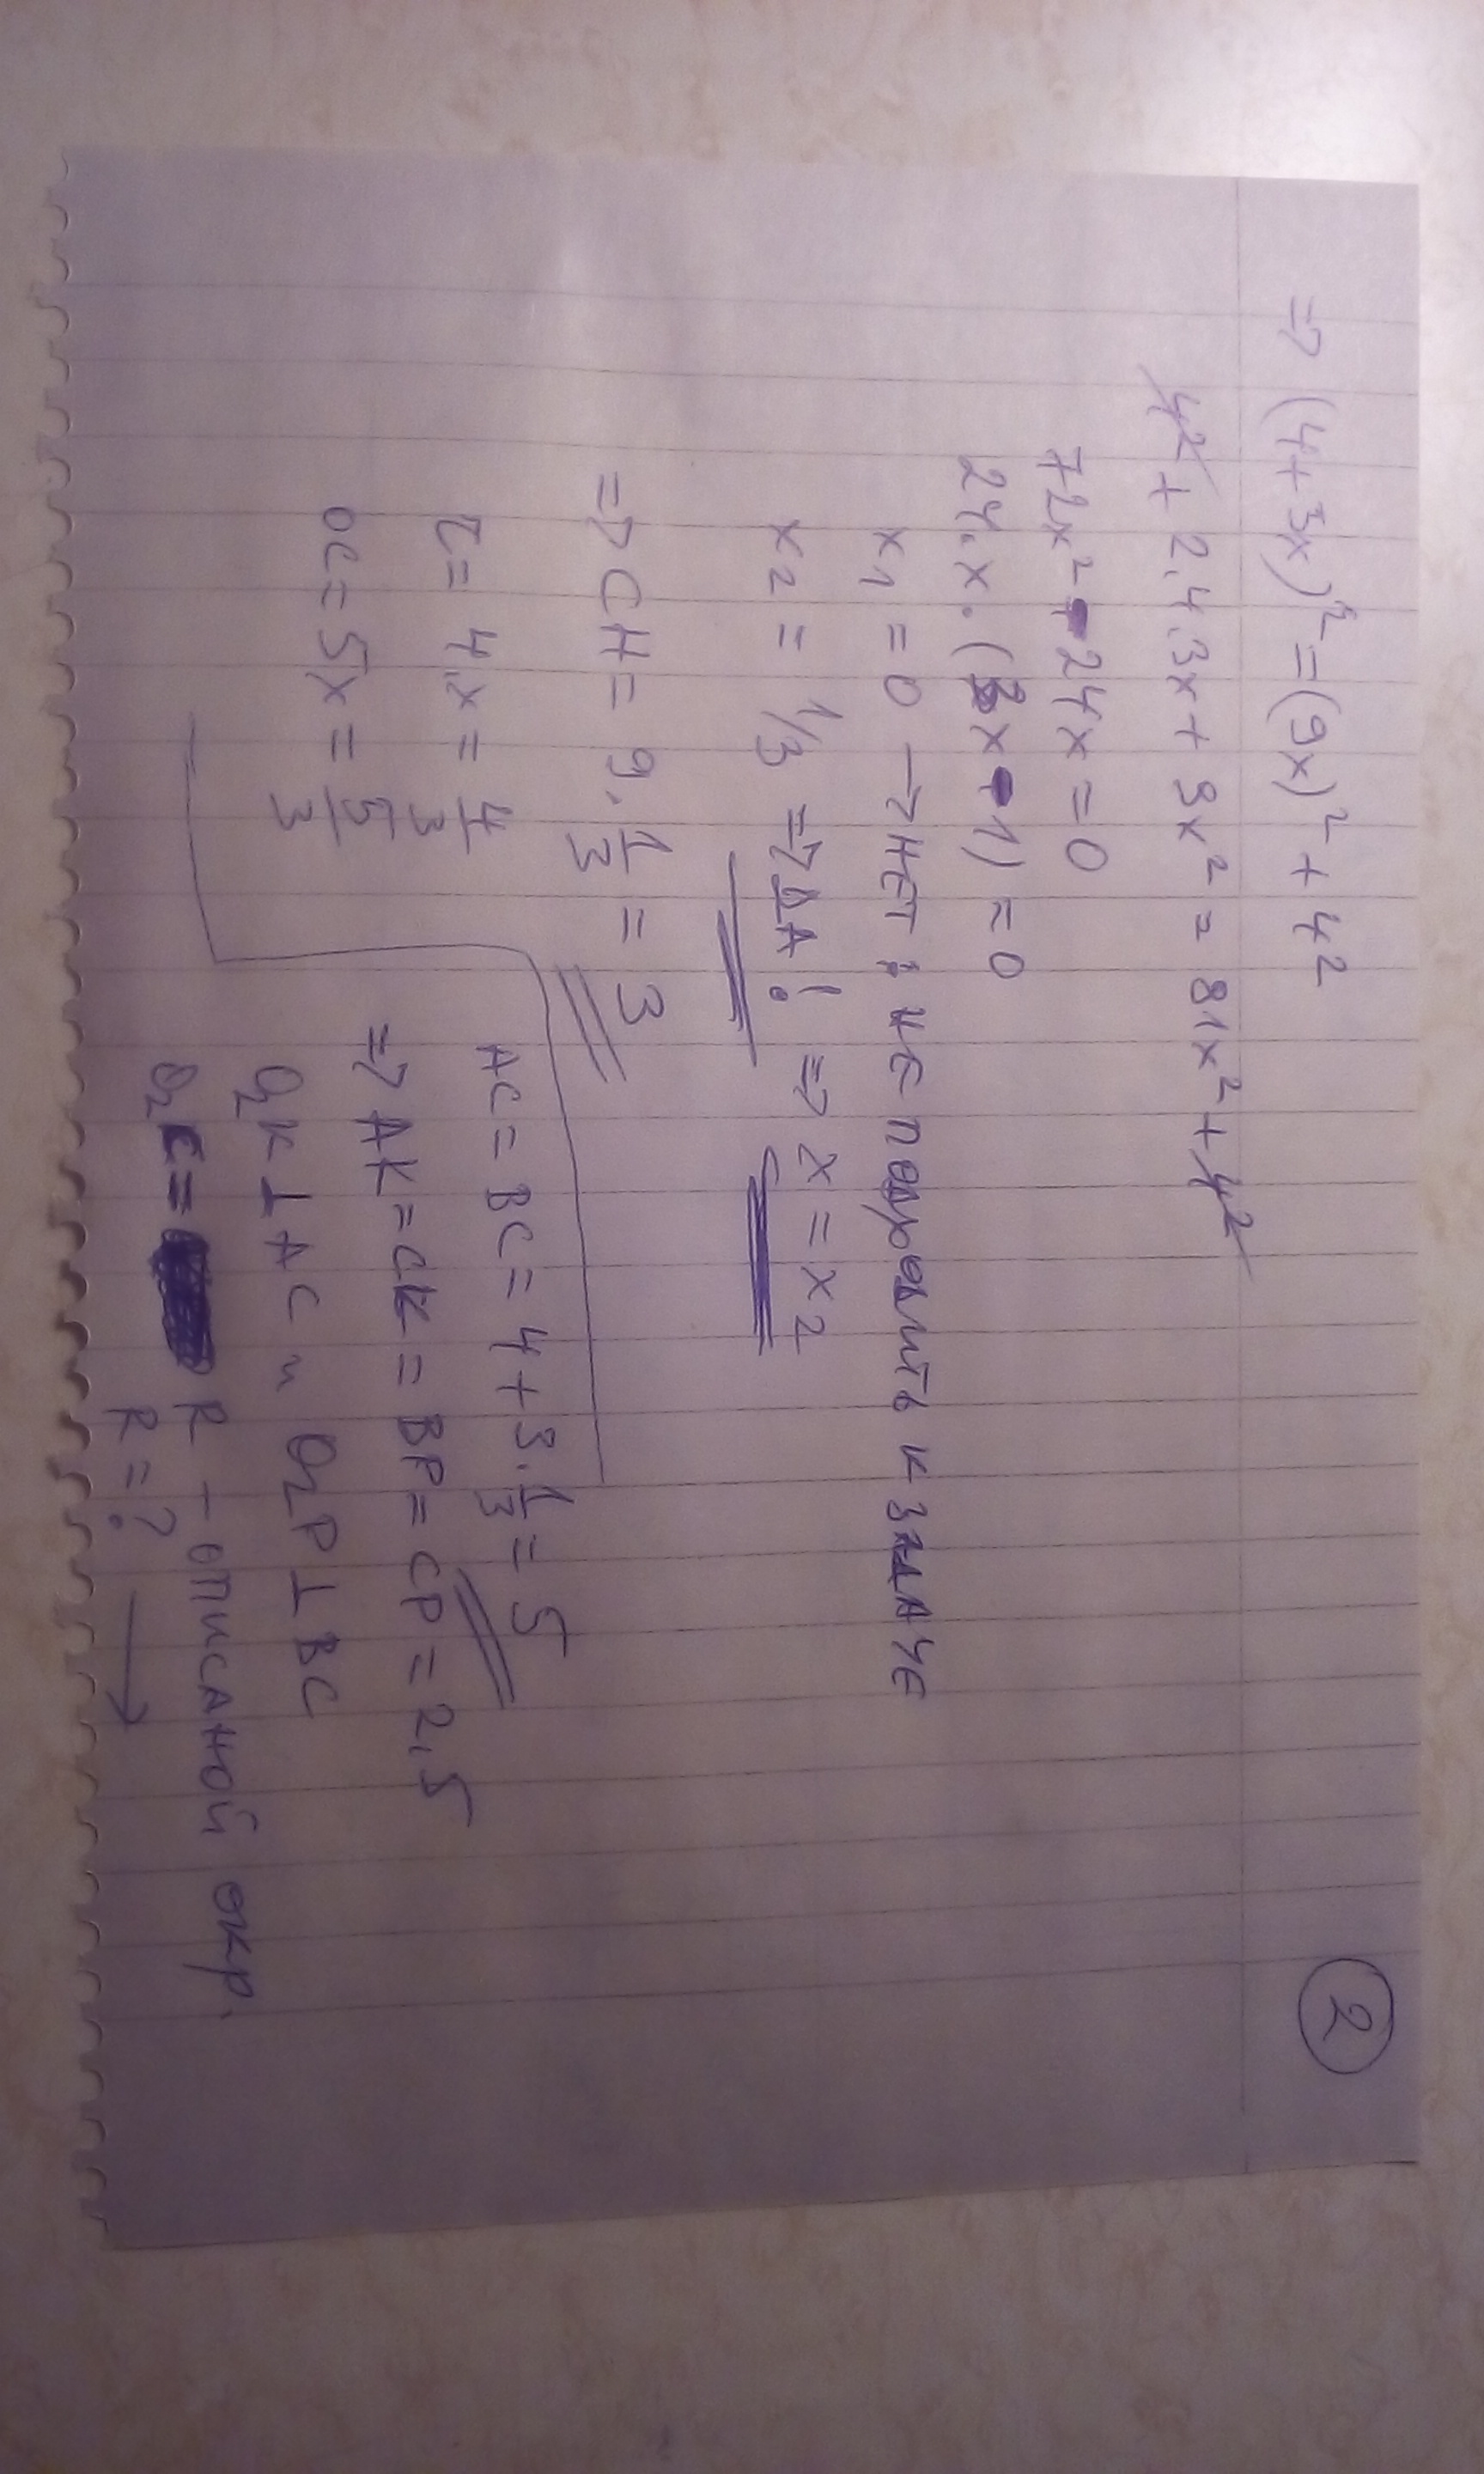 2
=> (4+3x)² = (9x)² + 4²
4² + 2.4.3x + 9x² = 81x² + 4²
72x² - 24x = 0
24.x.(3x-1) = 0
x₁ = 0 → НЕТ; НЕ ПОДХОДИТЬ К ЗАДАЧЕ
x₂ = 1/3 => ДА! => x = x₂
=> CH = 9.1/3 = 3
r = 4.x = 4/3
OC = 5x = 5/3
AC = BC = 4+3.1/3 = 5
=> AK = CK = BP = CP = 2,5
O₂K ⊥ AC и O₂P ⊥ BC
O₂C = R - ОПИСАНОЙ ОКР.
R = ? →